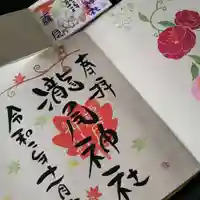 奉拝
瀧尾神社
令和二年十一月